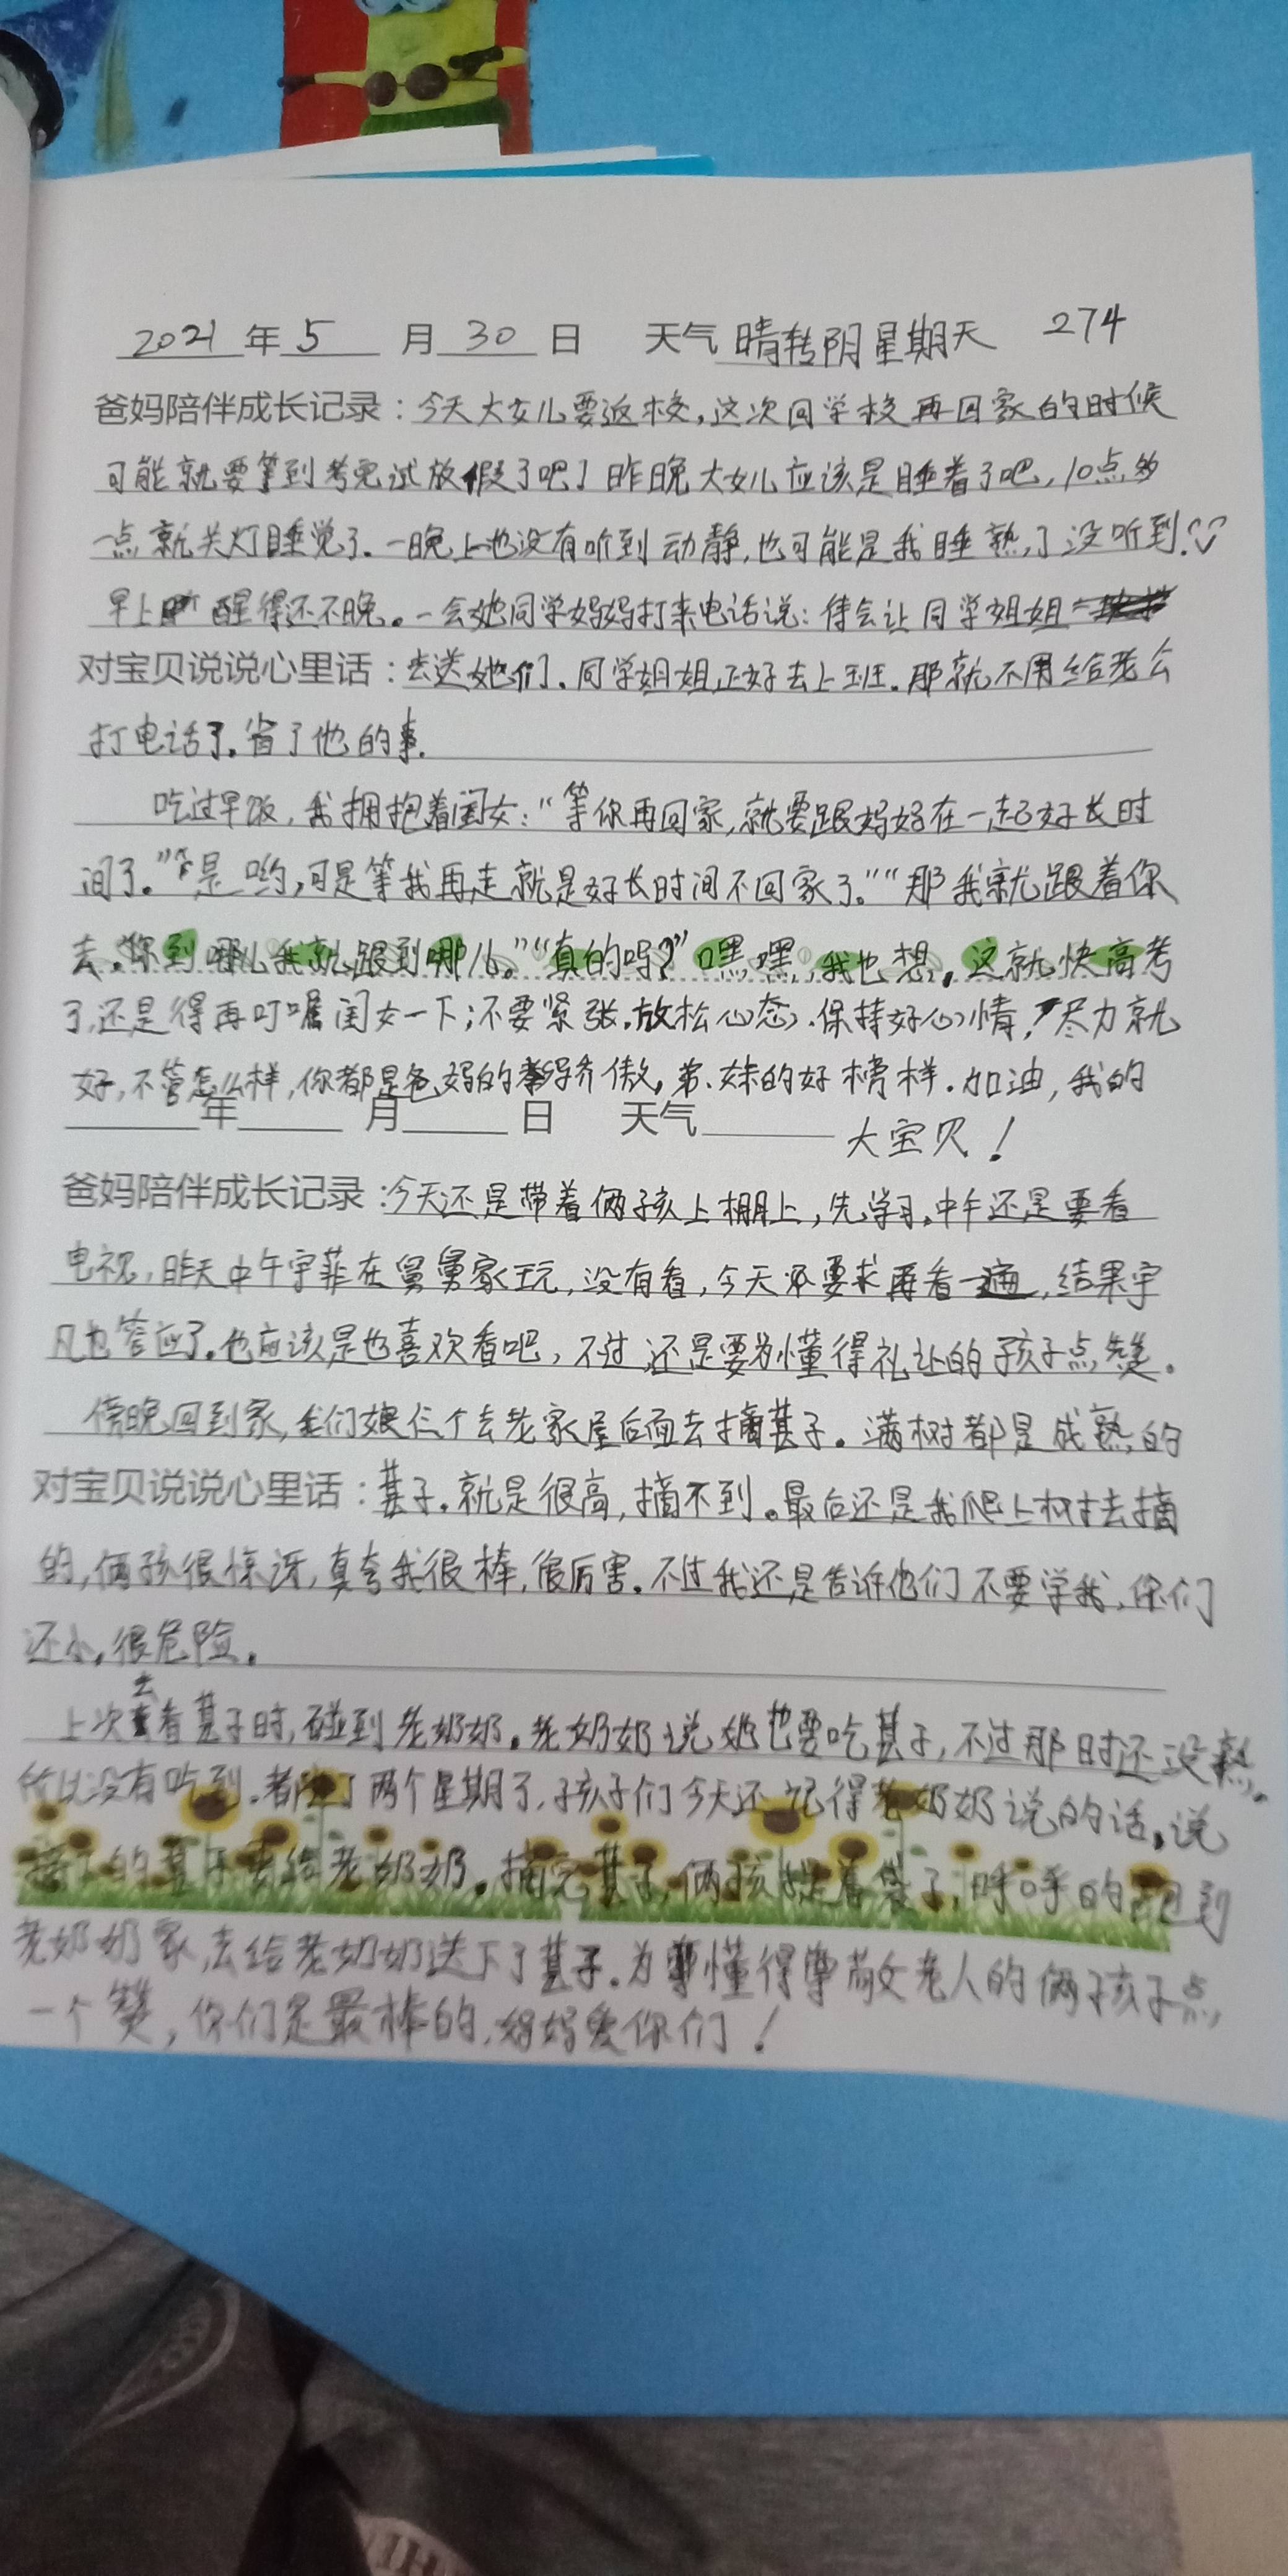 2021年5月30日 天气 晴转阴 星期天 274
爸妈陪伴成长记录：今天大女儿要返校，这次回学校再回家的时候
可能就要等到考完试放假了吧！昨晚大女儿应该是睡着了吧，10点多
一点就关灯睡觉了。一晚上也没有听到动静，也可能是我睡熟了没听到！
早上醒得还不晚。一会她同学妈妈打来电话说：待会让同学姐姐
对宝贝说说心里话：去送她们。同学姐姐正好去上班。那就不用给老公
打电话了。省了他的事。
吃过早饭，我拥抱着闺女：“等你再回家，就要跟妈妈在一起好长时
间了。”“是哟，可是等我再走就是好长时间不回家了。”“那我就跟着你
去。你到哪儿我就跟到哪儿。”“真的吗？”嘿嘿，我也想。这就快高考
了，还是得再叮嘱闺女一下；不要紧张。放松心态，保持好心情！尽力就
好，不管怎么样，你都是爸妈的骄傲，弟、妹的好榜样。加油，我的
大宝贝！
年 月 日 天气
爸妈陪伴成长记录：今天还是带着俩孩上棚上，先学习，中午还是要看
电视，昨天中午宇菲在舅舅家玩，没有看，今天还要求再看一遍，结果宇
凡也答应了。也应该是也喜欢看吧，不过还是要为懂得礼让的孩子点赞。
傍晚回到家，我们娘仨个去老家屋后面去摘葚子。满树都是成熟的
对宝贝说说心里话：葚子。就是很高，摘不到。最后还是我爬上树去摘
的，俩孩很惊讶，真夸我很棒，很厉害。不过我还是告诉他们不要学我，你们
还小。很危险。
上次去看葚子时，碰到老奶奶。老奶奶说她也要吃葚子，不过那时还没熟。
所以没有吃到。都两个星期了，孩子们今天还记得老奶奶说的话。说
摘了的葚子要给老奶奶。摘完葚子，俩孩提着袋子，呼呼的跑到
老奶奶家，去给老奶奶送下了葚子。为懂得尊敬老人的俩孩子点
一个赞，你们是最棒的，妈妈爱你们！